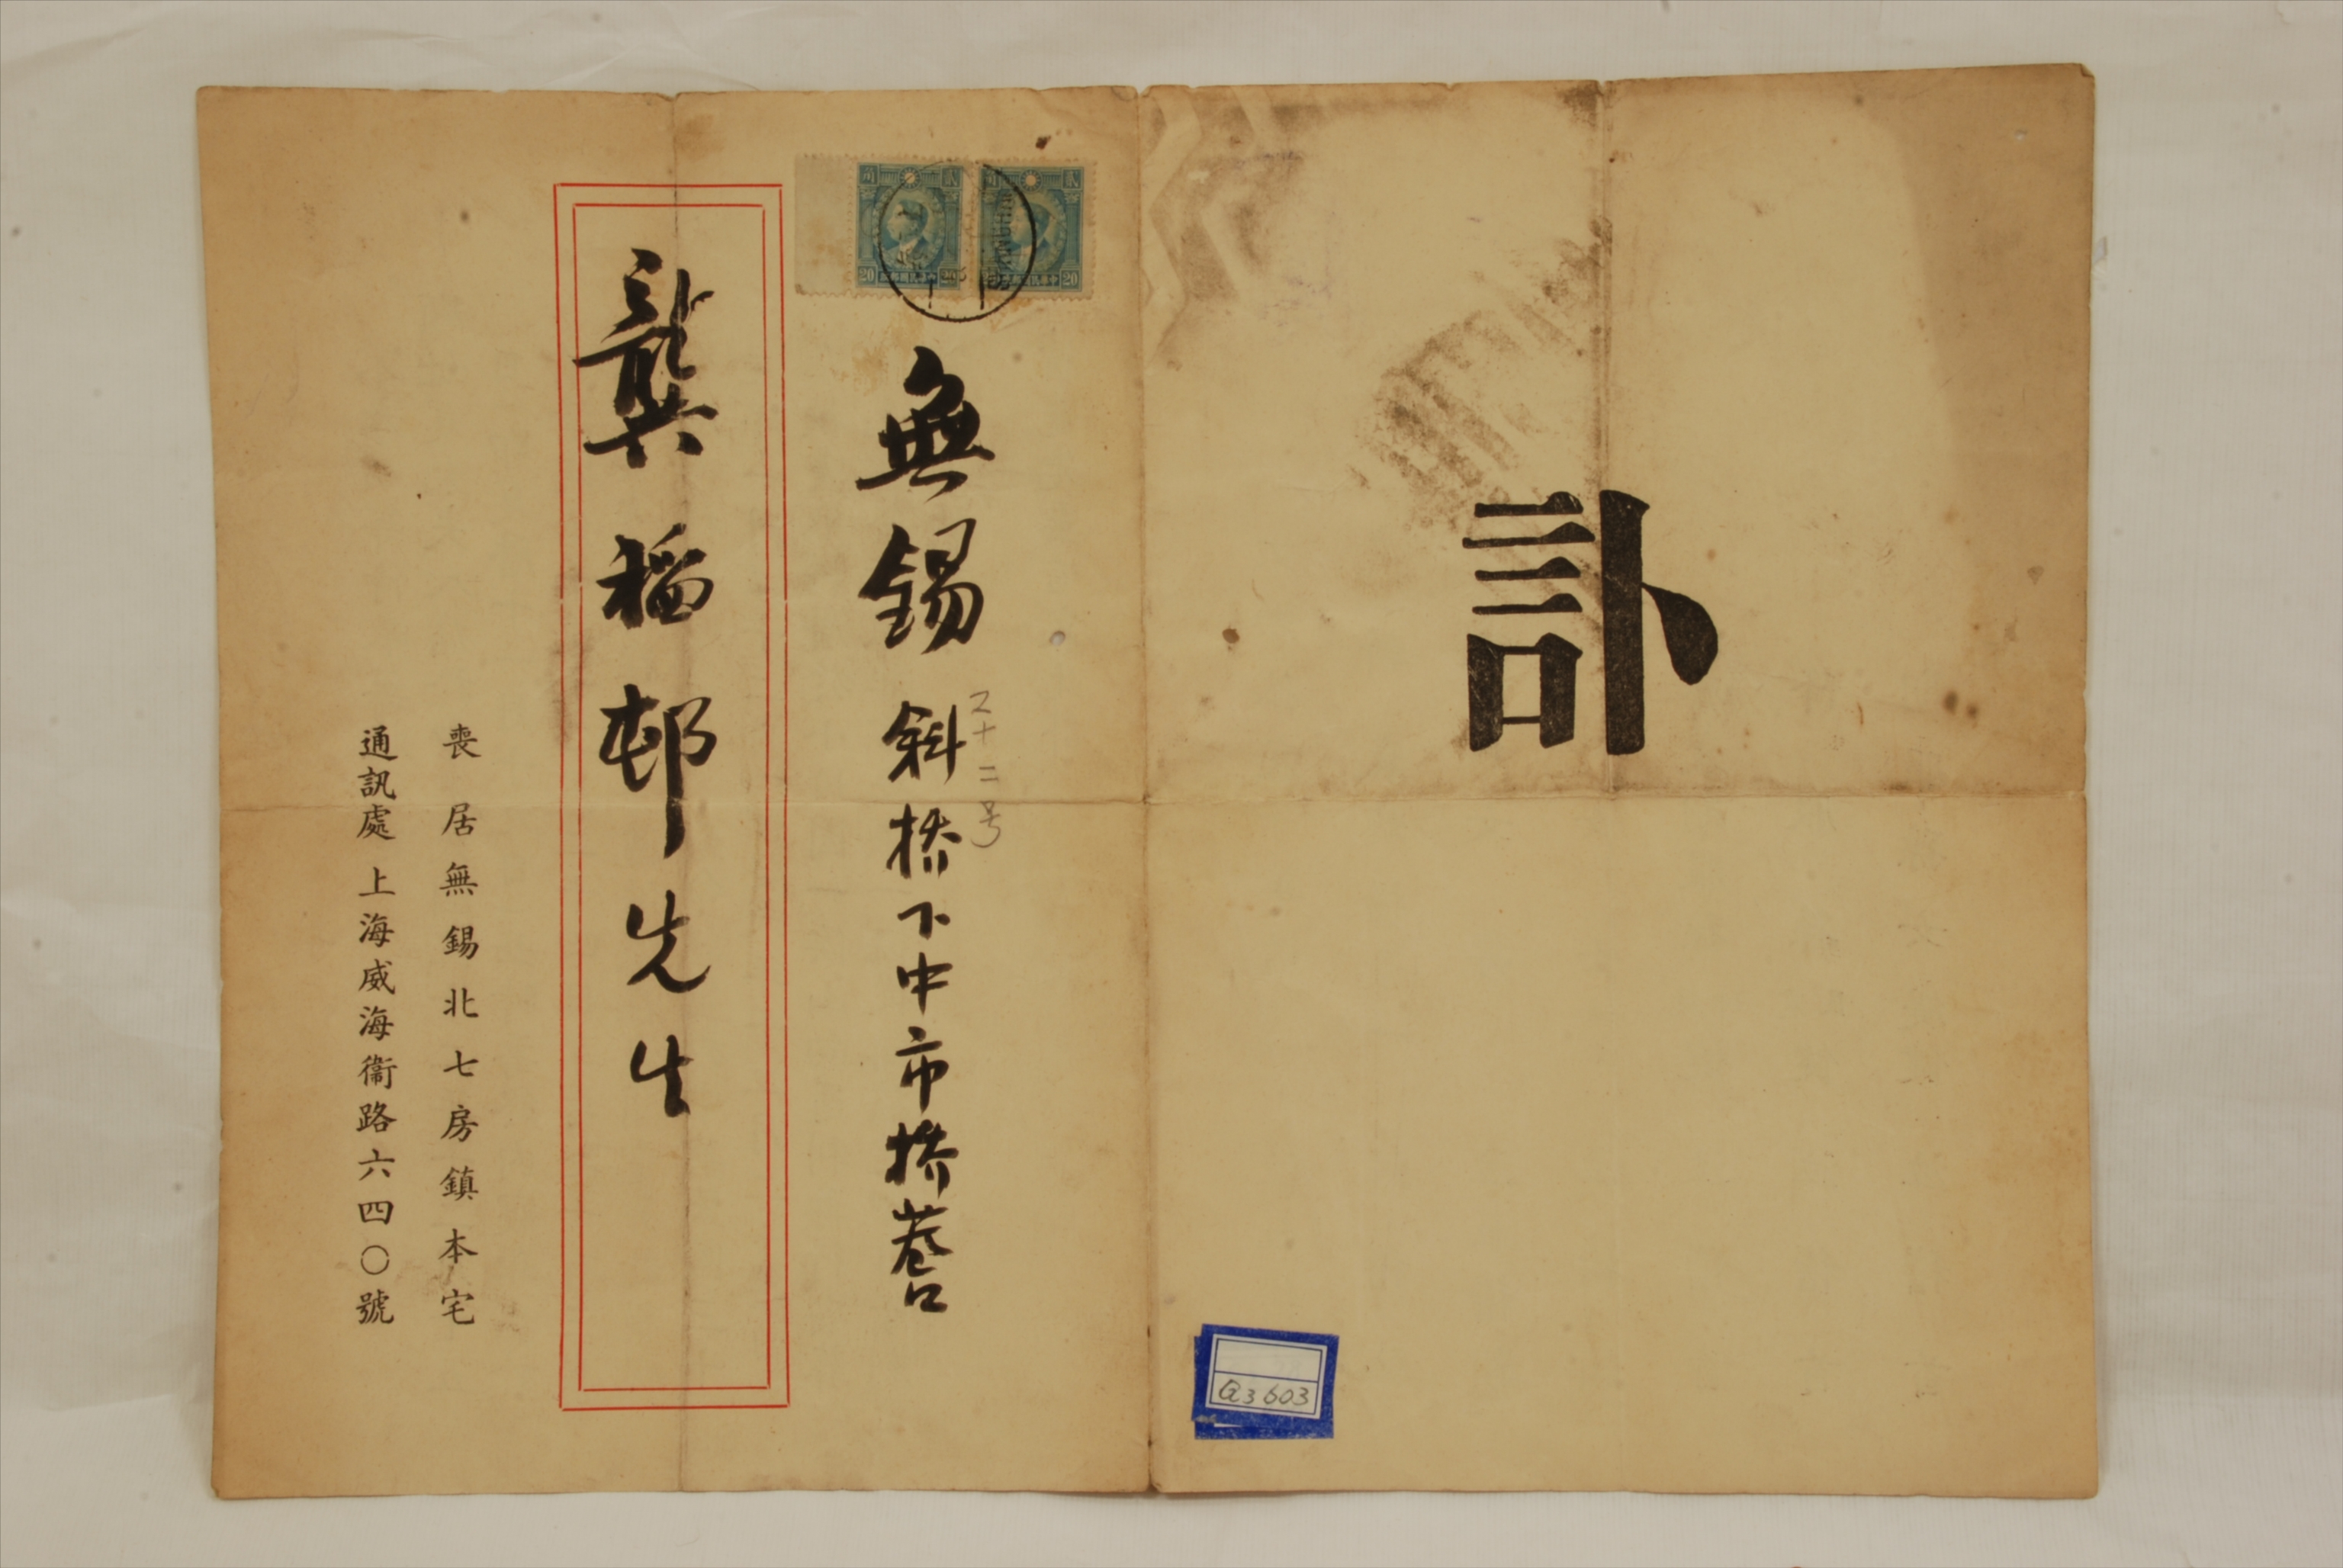 訃
無錫斜橋下中市橋巷口
十二号
龔稻邨先生
喪居無錫北七房鎮本宅
通訊處上海威海衞路六四〇號
20 20
20
G3603